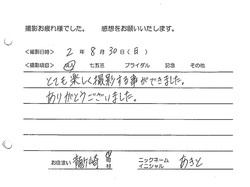 撮影お疲れ様でした。　感想をお願いいたします。
<撮影日時>　2 年 8 月 30 日 (日)
<撮影項目>　七五三　ブライダル　記念　その他
とても楽しく撮影する事ができました。
ありがとうございました。
お住まい　龍ヶ崎　市　町村　ニックネーム イニシャル　あきと